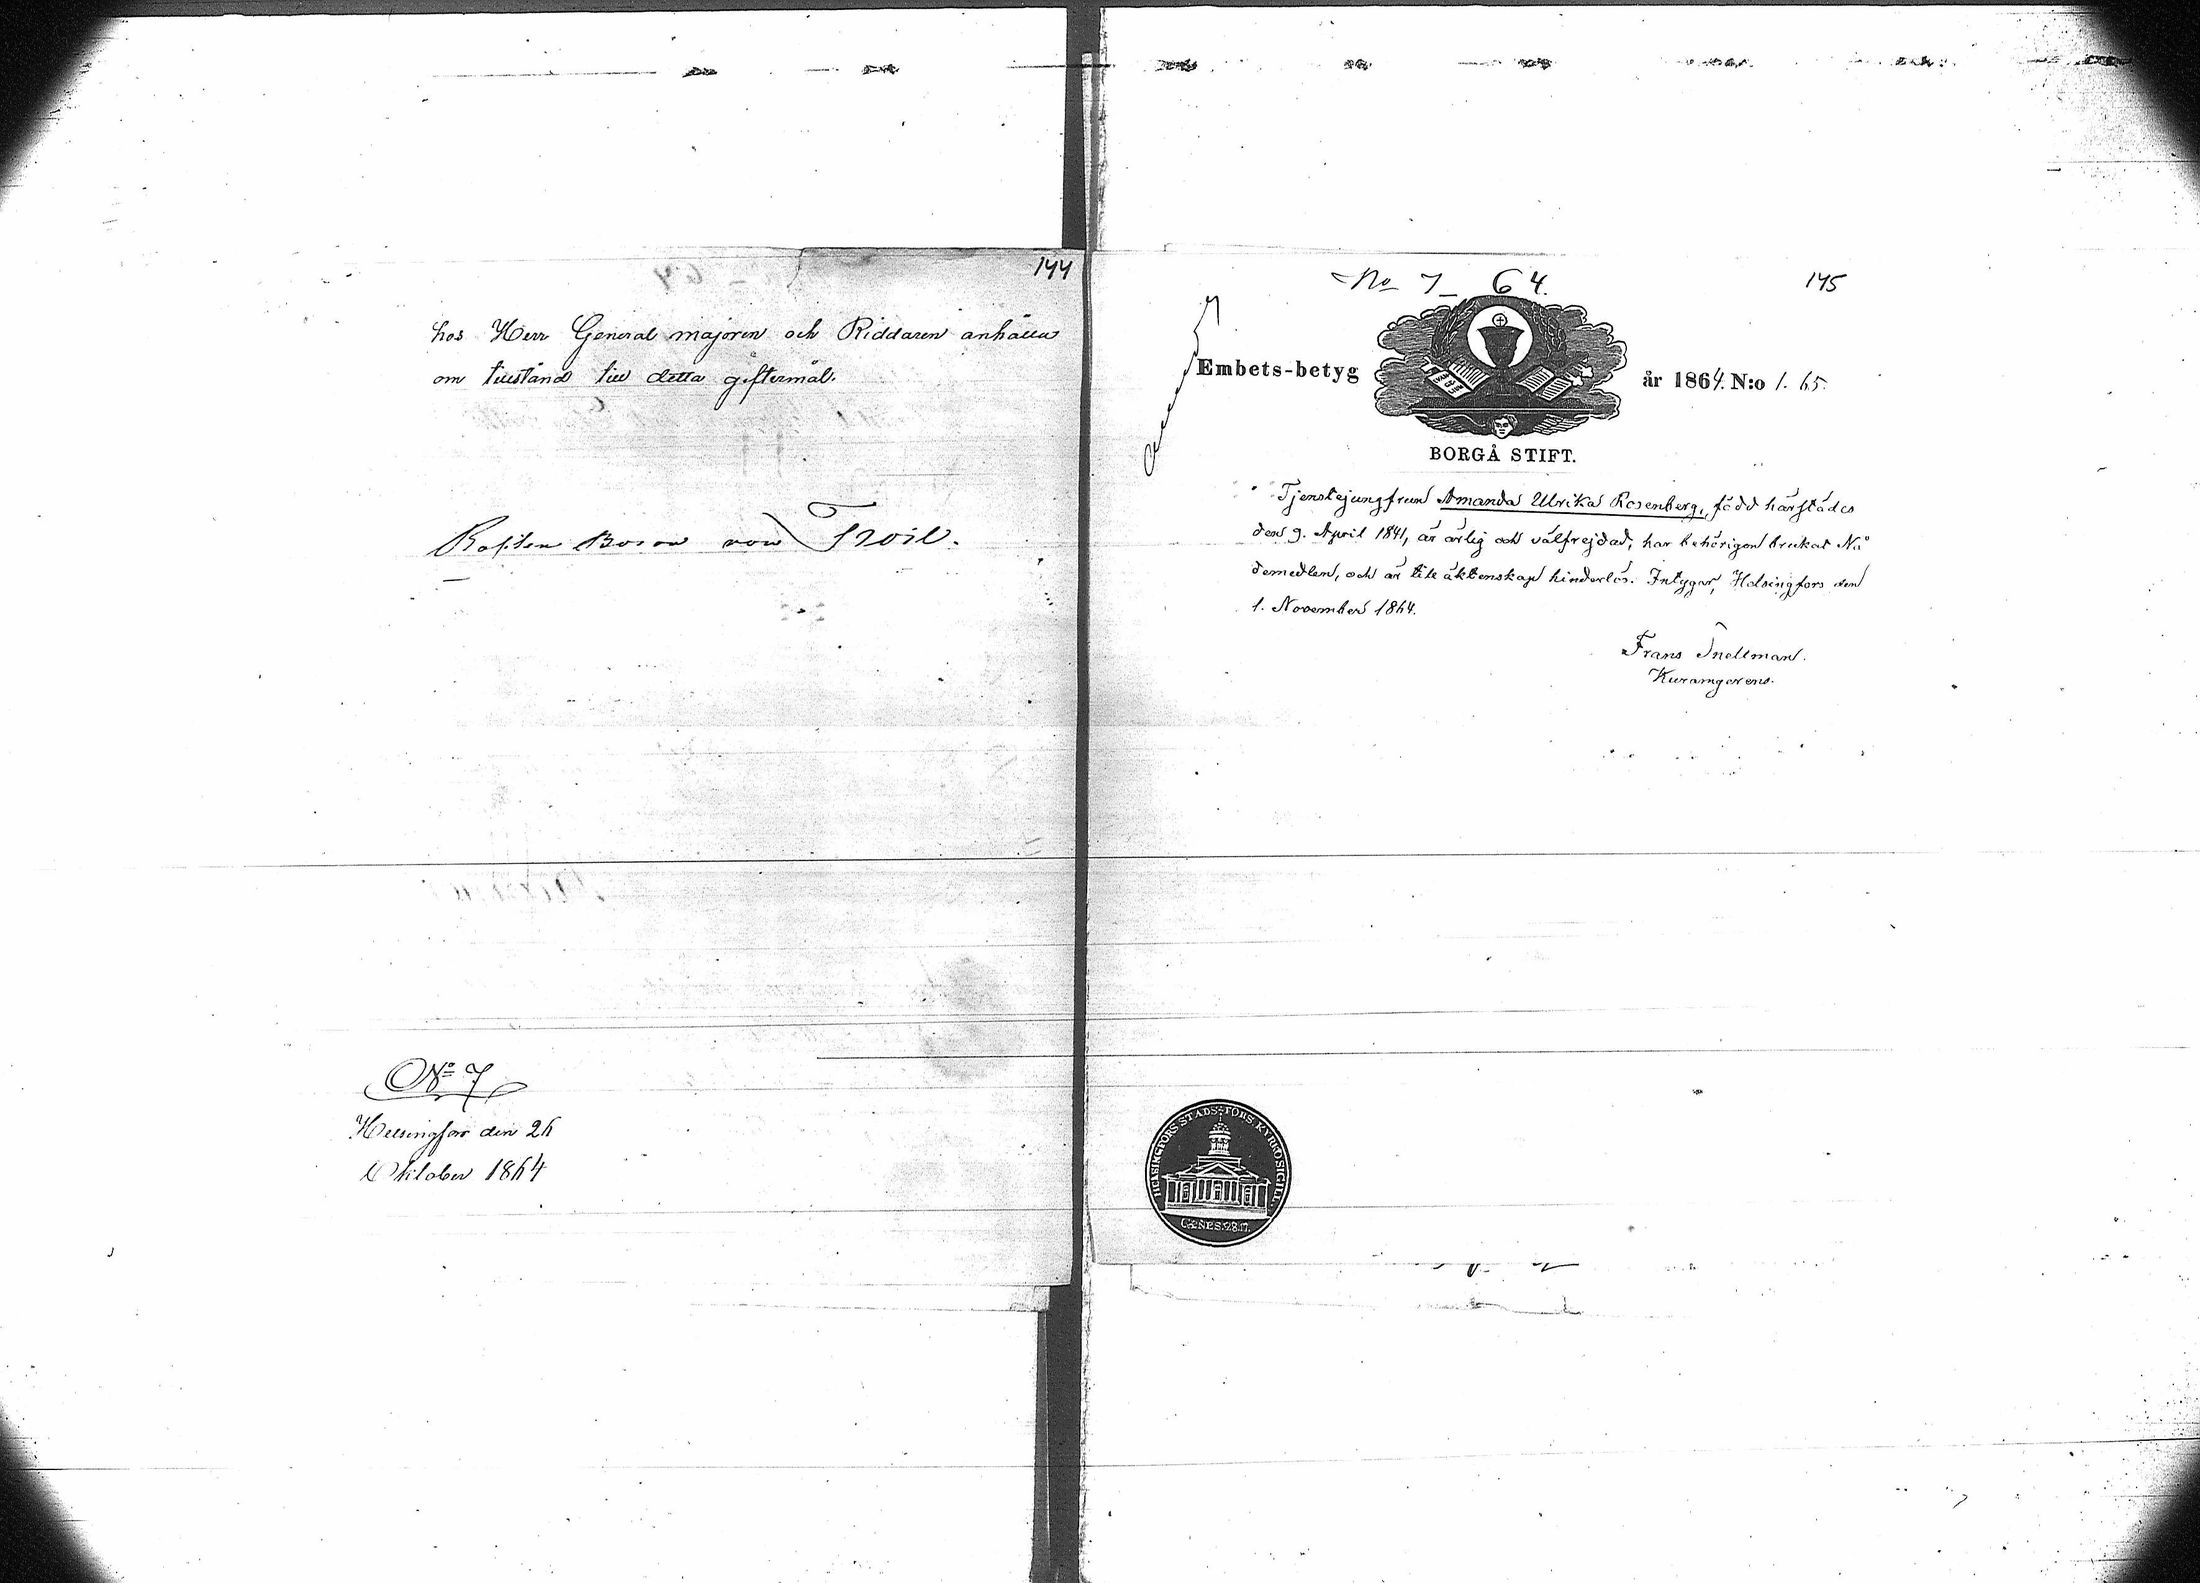 144
hos Herr General majoren och Riddaren anhålla
om tillstånd till detta giftermål.
Kapiten Baron von Troil.
No 7
Helsingfors den 26
Oktober 1864
No 7 64.
145
Embets-betyg
år 1864. N:o 1. 65.
BORGÅ STIFT.
Tjenstejungfrun Amanda Ulrika Rosenberg, född härstädes
den 9. April 1841, är ärlig och välfrejdad, har behörigen brukat Nå
demedlen, och är till äktenskap hinderlös. Intygar, Helsingfors den
1. November 1864.
Frans Snellman.
HELSINGFORS STADS-FÖRS. KYRKO SIGILL.
GENES. 28.17.